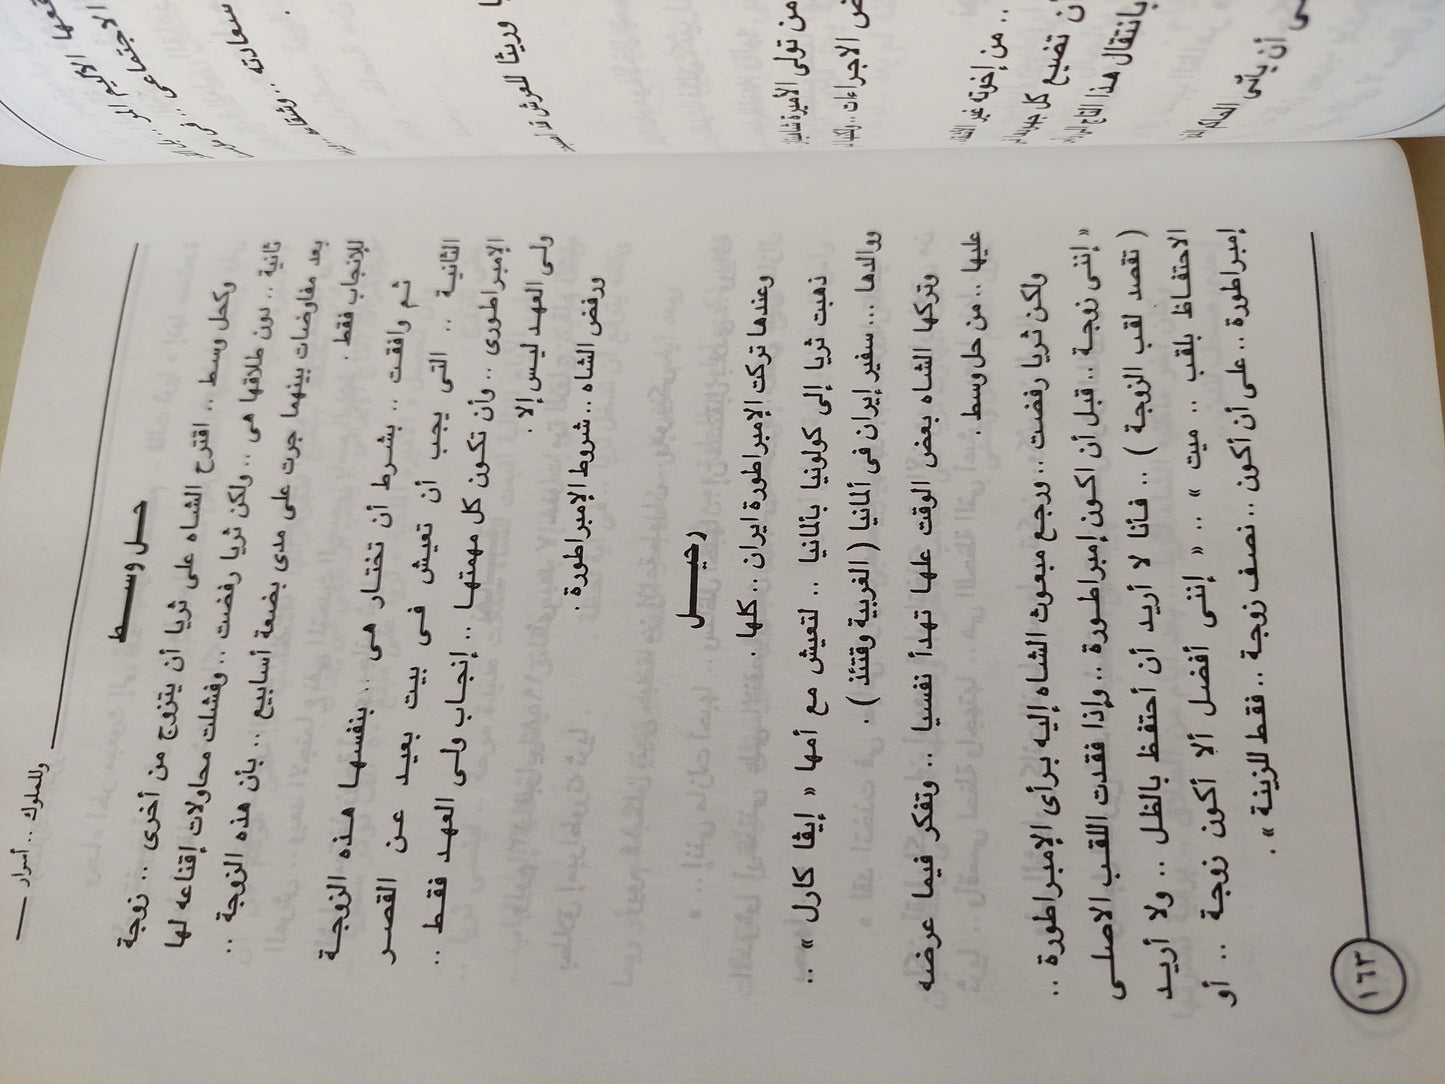 وللملوك .. أسرار
حـــل وســـــط
وكحل وسط .. اقترح الشاه على ثريا أن يتزوج من أخرى .. زوجة
ثانية .. دون طلاقها هى .. ولكن ثريا رفضت .. وفشلت محاولات إقناعه لها
بعد مفاوضات بينهما جرت على مدى بضعة أسابيع .. بأن هذه الزوجة ..
للإنجاب فقط .
ثـم وافقـت .. بشرط أن تختـار هـى .. بنفسـها هـذه الزوجـة
الثانيـة .. التـى يجـب أن تعيـش فـى بيـت بعيـد عـن القصـر
الإمبـراطـورى .. وأن تكـون كل مهمتهـا .. إنجـاب ولـى العهـد فقـط ..
ولـى العهـد ليـس إلا .
ورفض الشاه .. شروط الإمبراطورة .
رحيـــــل
وعندها تركت الإمبراطورة ايران .. كلها .
ذهبت ثريا إلى كولونيا بألمانيا .. لتعيش مع أمها « إيڤا كارل » ..
ووالدها ... سفير إيران فى ألمانيا ( الغربية وقتئذ ) .
وتركها الشاه بعض الوقت علها تهدأ نفسيا .. وتفكر فيما عرضه
عليها .. من حل وسط .
ولكن ثريا رفضت .. ورجع مبعوث الشاه إليه برأى الإمبراطورة ..
« إننى زوجـة .. قبل أن اكـون إمبراطـورة .. وإذا فقدت اللقـب الاصلـى
( تقصد لقب الزوجة ) .. فـأنا لا أريـد أن أحتفـظ بالظـل .. ولا أريـد
الاحتفـاظ بلقـب .. ميت » .. « إننـى أفضـل ألا أكـون زوجـة .. أو
إمبراطورة .. على أن أكون .. نصف زوجـة .. فقط للزينـة » .
١٦٣
الاجتماعى
سعادته
من تولى الأميرة
من إخوته غير
أن تضيع كل
بانتقال هذا التاج
أن يأتى